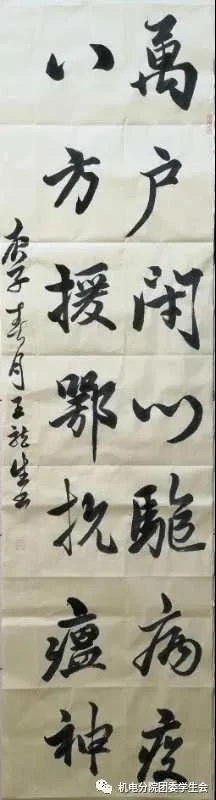 萬户闭门驅病疫
八方援鄂抗瘟神
庚子春月王龍生书
机电分院团委学生会